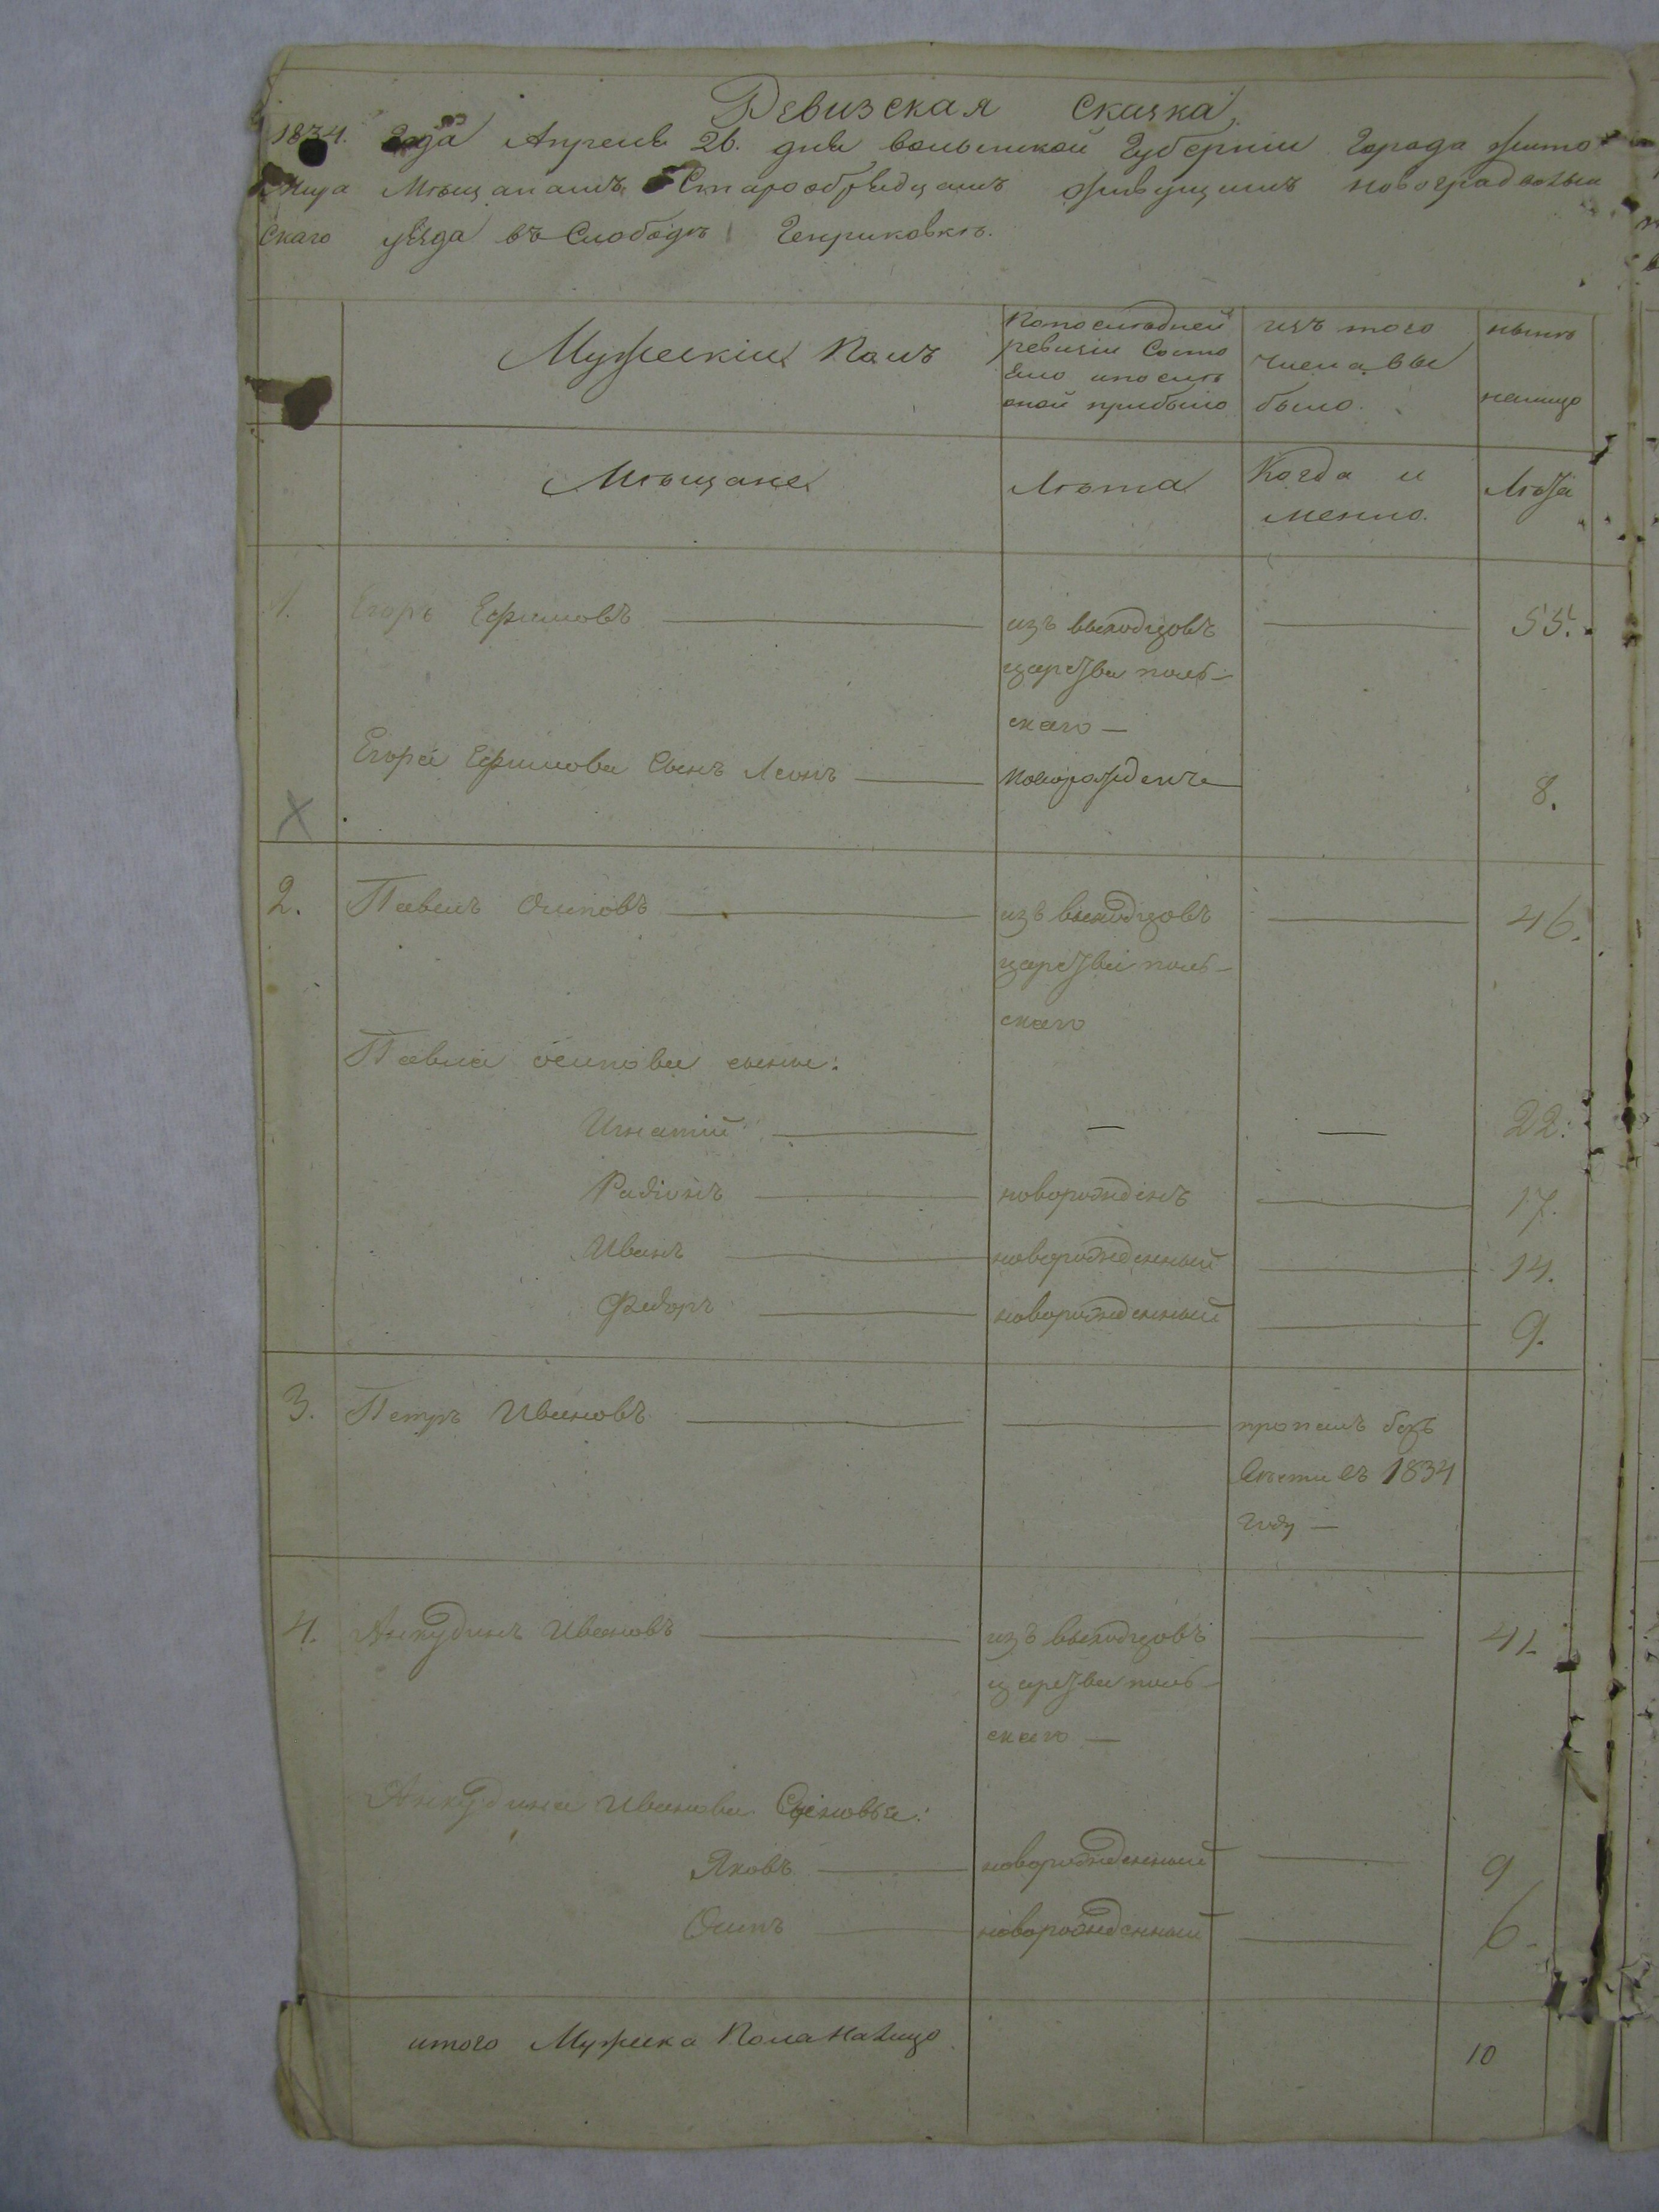 Ревизская Скаска
1834. Года Апреля 26. дня волынской Губернии Города Жито
мира Мѣщанамъ Старообрядцамъ живущимъ новоградволын
Скаго уѣзда въ Слободѣ Генриковкѣ.
Мужескій Полъ
Попоследней ревизіи Состо яло ипослѣ оной прибыло
изъ того числа вы было.
нынѣ налицо
Мѣщане
Лѣта
Когда и менно.
Лѣта
1. Егоръ Ефимовъ — изъ выходцовъ — 55.
царства поль-
скаго —
Егора Ефимова Сынъ Леонъ — новорожденъ 8.
X
2. Павелъ Осиповъ — изъ выходцовъ — 46.
царства поль-
скаго
Павла осипова сыны:
Игнатій — — — 22.
Радіонъ — новорожденъ — 17.
Иванъ — новорожденный — 14.
Федоръ — новорожденный — 9.
3. Петръ Ивановъ — — пропалъ безъ
вѣсти въ 1834
году —
4. Анкудинъ Ивановъ — изъ выходцовъ — 41.
царства поль-
скаго —
Анкудина Иванова Сыновья:
Яковъ — новорожденный — 9
Осипъ — новорожденный — 6.
итого Мужска Пола Налицо 10